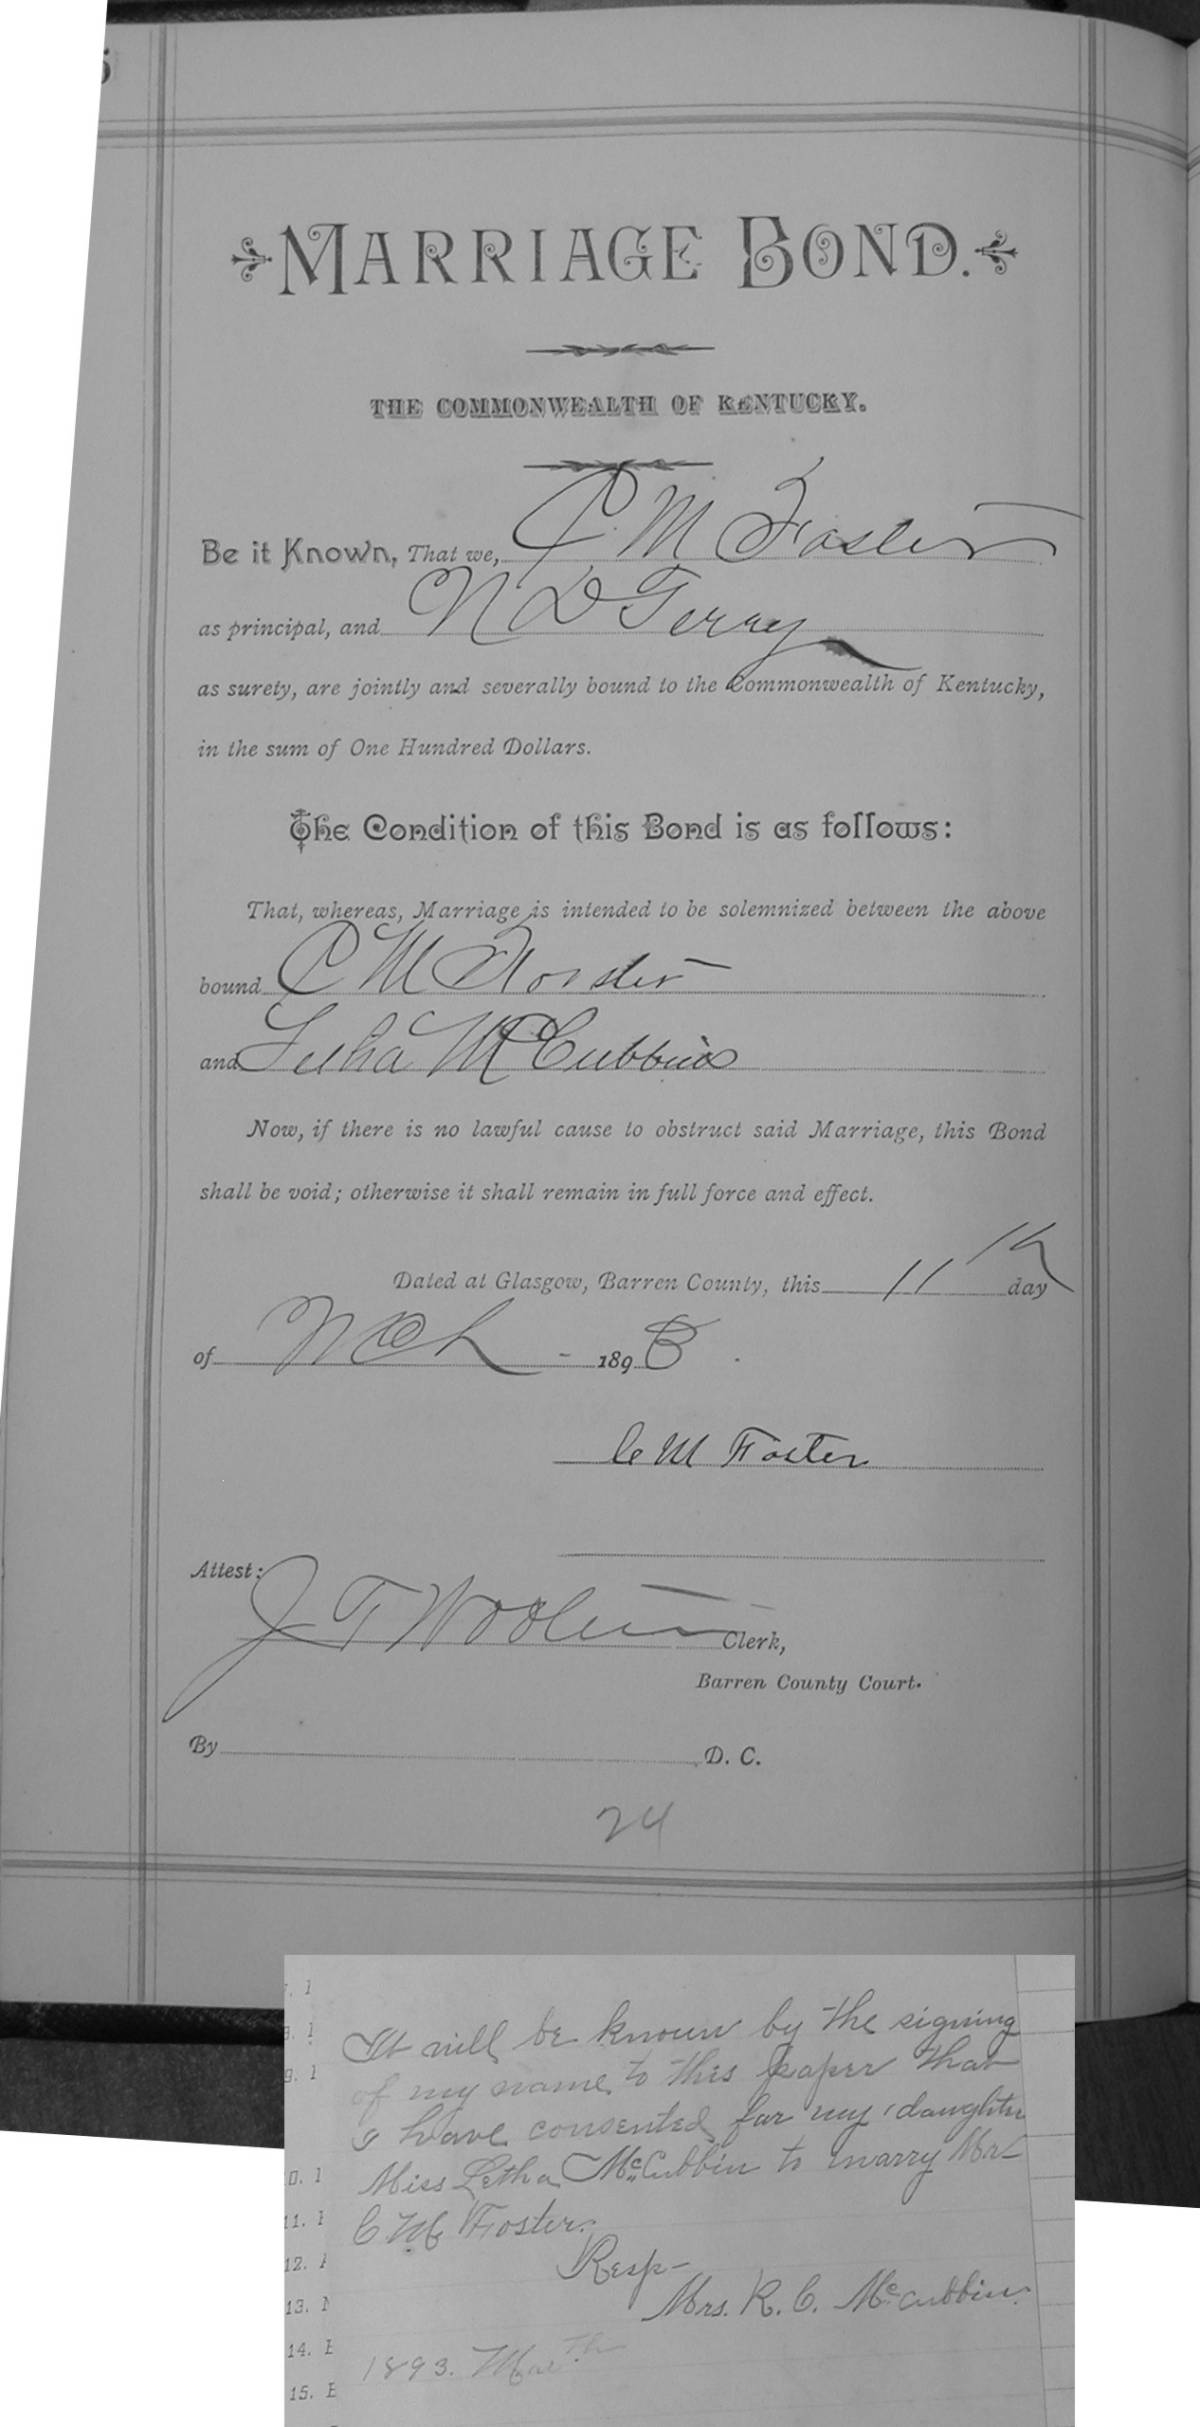 MARRIAGE BOND.
THE COMMONWEALTH OF KENTUCKY.
Be it Known, That we, C M Foster
as principal, and N D Terry
as surety, are jointly and severally bound to the Commonwealth of Kentucky,
in the sum of One Hundred Dollars.
The Condition of this Bond is as follows:
That, whereas, Marriage is intended to be solemnized between the above
bound C M Forster
and McCubbins
Now, if there is no lawful cause to obstruct said Marriage, this Bond
shall be void; otherwise it shall remain in full force and effect.
Dated at Glasgow, Barren County, this 11th day
of Mch - 189
C M Foster
Attest:
J T Clerk,
Barren County Court.
By D. C.
24
It will be known by the signing
of my name to this paper that
I have consented for my daughter
Miss Letha McCubbin to marry Mr
C M Foster.
Resp-
Mrs. R. C. McCubbin.
1893.
11.
12.
13.
14.
15.